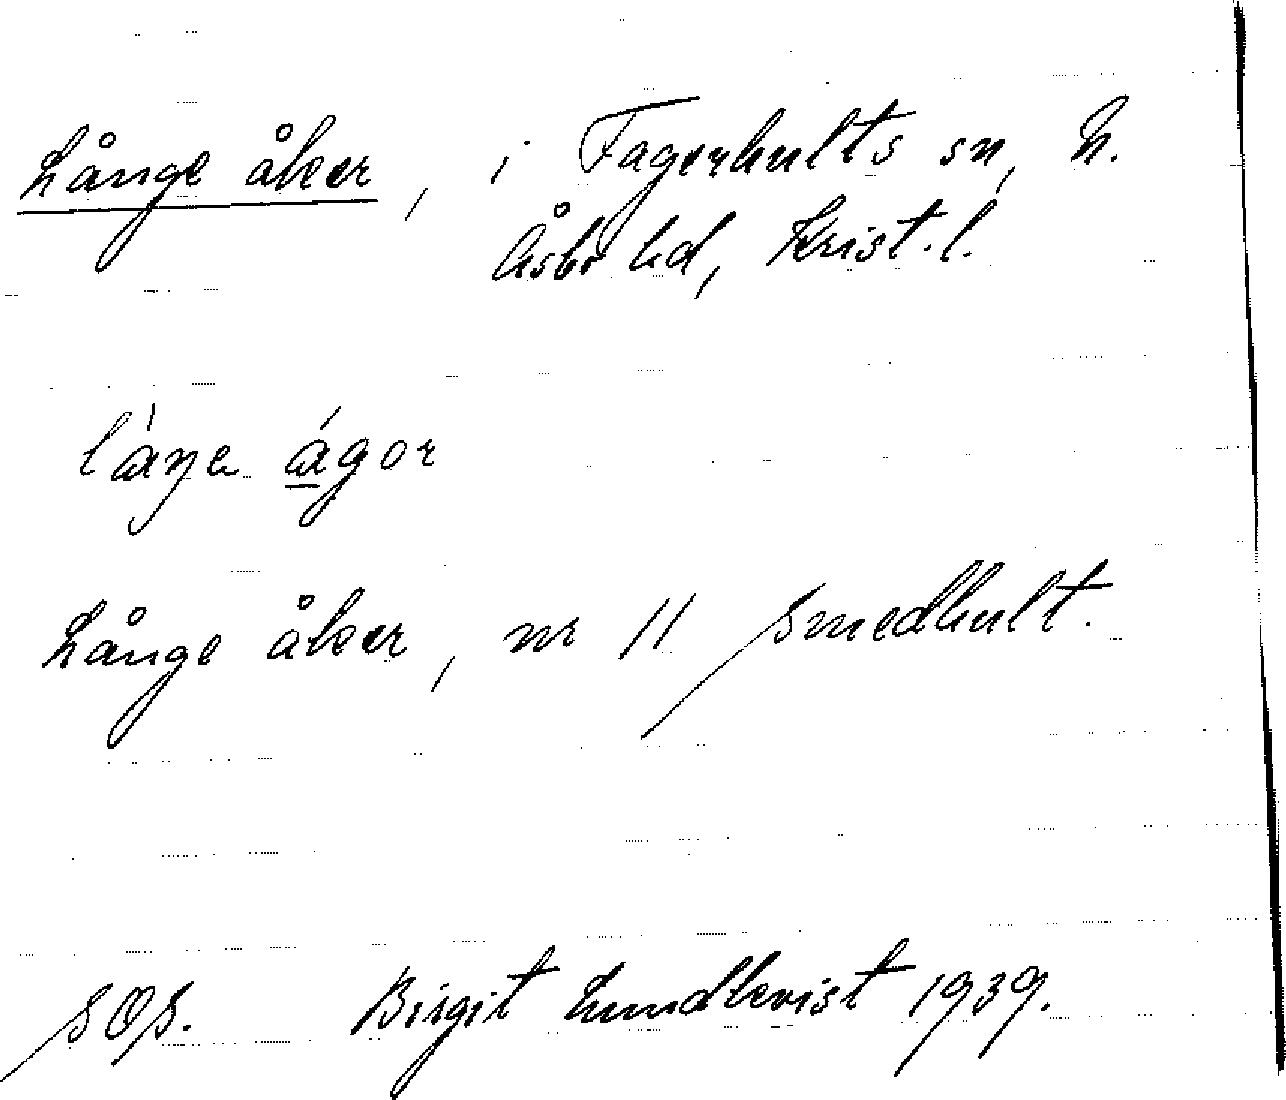 Långe åker, i Fagerhults sn, N.
Åsbo hd, Krist. l.
låŋe ågor
Långe åker, nr 11 Smedhult.
SOS. Birgit Lundkvist 1939.